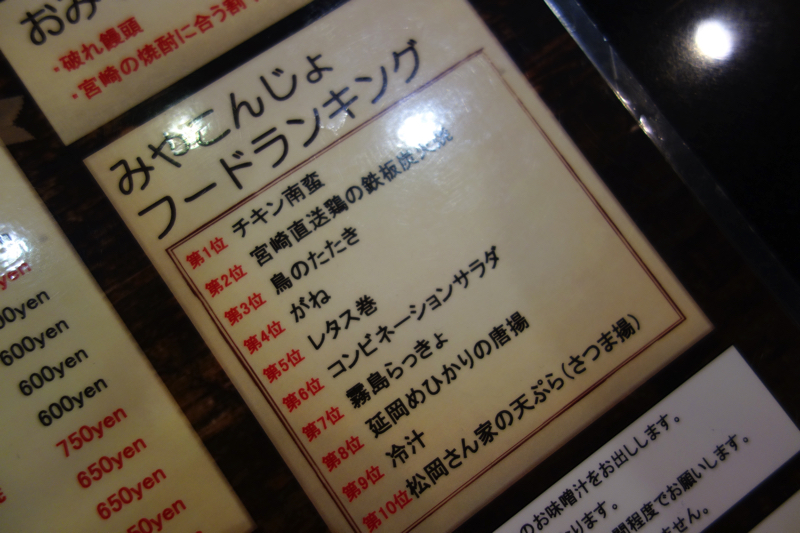 おみ
・破れ饅頭
・宮崎の焼酎に合う割
みやこんじょ
フードランキング
第1位 チキン南蛮
第2位 宮崎直送鶏の鉄板炭火焼
第3位 鳥のたたき
第4位 がね
第5位 レタス巻
第6位 コンビネーションサラダ
第7位 霧島らっきょ
第8位 延岡めひかりの唐揚
第9位 冷汁
第10位 松岡さん家の天ぷら(さつま揚)
yen
00yen
600yen
600yen
600yen
750yen
650yen
650yen
50yen
のお味噌汁をお出しします。
ります。
間程度でお願いします。
せん。